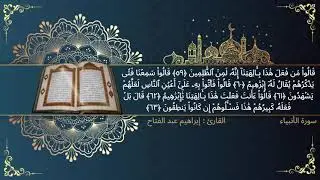 قَالُوا۟ مَن فَعَلَ هَٰذَا بِـَٔالِهَتِنَآ إِنَّهُۥ لَمِنَ ٱلظَّٰلِمِينَ (٥٩) قَالُوا۟ سَمِعْنَا فَتًى
يَذْكُرُهُمْ يُقَالُ لَهُۥٓ إِبْرَٰهِيمُ (٦٠) قَالُوا۟ فَأْتُوا۟ بِهِۦ عَلَىٰٓ أَعْيُنِ ٱلنَّاسِ لَعَلَّهُمْ
يَشْهَدُونَ (٦١) قَالُوٓا۟ ءَأَنتَ فَعَلْتَ هَٰذَا بِـَٔالِهَتِنَا يَٰٓإِبْرَٰهِيمُ (٦٢) قَالَ بَلْ
فَعَلَهُۥ كَبِيرُهُمْ هَٰذَا فَسْـَٔلُوهُمْ إِن كَانُوا۟ يَنطِقُونَ (٦٣)
سورة الأنبياء القارئ : إبراهيم عبد الفتاح